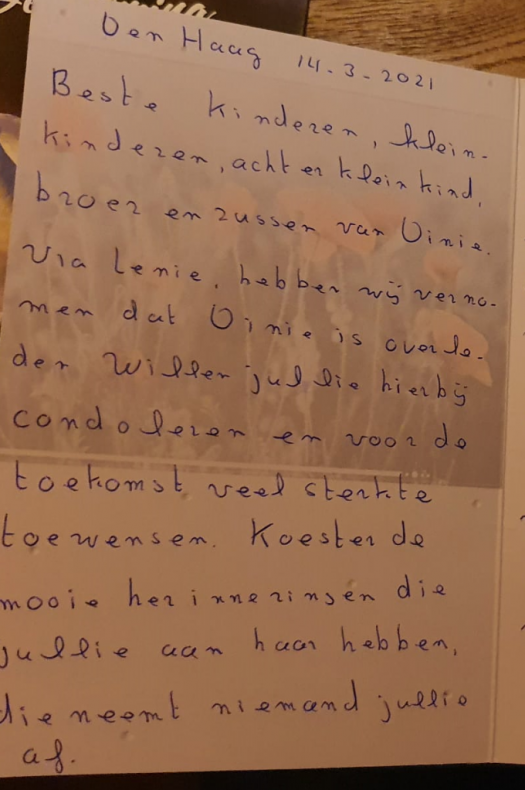 Den Haag 14-3-2021
Beste kinderen, klein-
kinderen, achterkleinkind,
broer en zussen van Dinie.
Via Lenie, hebben wij verno-
men dat Dinie is overle-
den Willen jullie hierbij
condoleren en voor de
toekomst veel sterkte
toewensen. Koester de
mooie herinneringen die
jullie aan haar hebben,
die neemt niemand jullie
af.